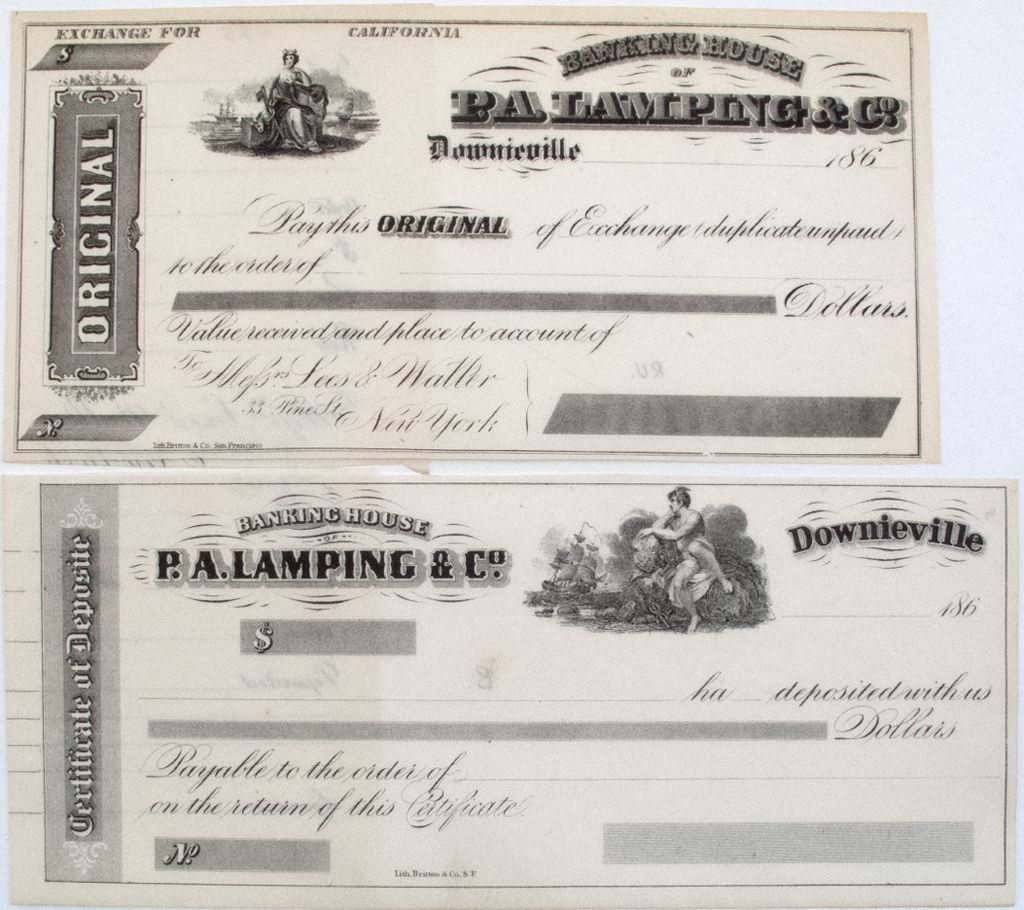 EXCHANGE FOR CALIFORNIA
$
BANKING HOUSE
OF
P.A. LAMPING & Cº
Downieville 186
ORIGINAL
Pay this ORIGINAL of Exchange (duplicate unpaid)
to the order of
Dollars.
Value received and place to account of
To Messrs Lees & Waller
33 Pine St.
New York
Nº
Lith. Britton & Co. San Francisco
Certificate of Deposite
BANKING HOUSE
OF
P. A. LAMPING & Cº
Downieville
186
$
ha deposited with us
Dollars
Payable to the order of
on the return of this Certificate.
Nº
Lith. Britton & Co. S. F.